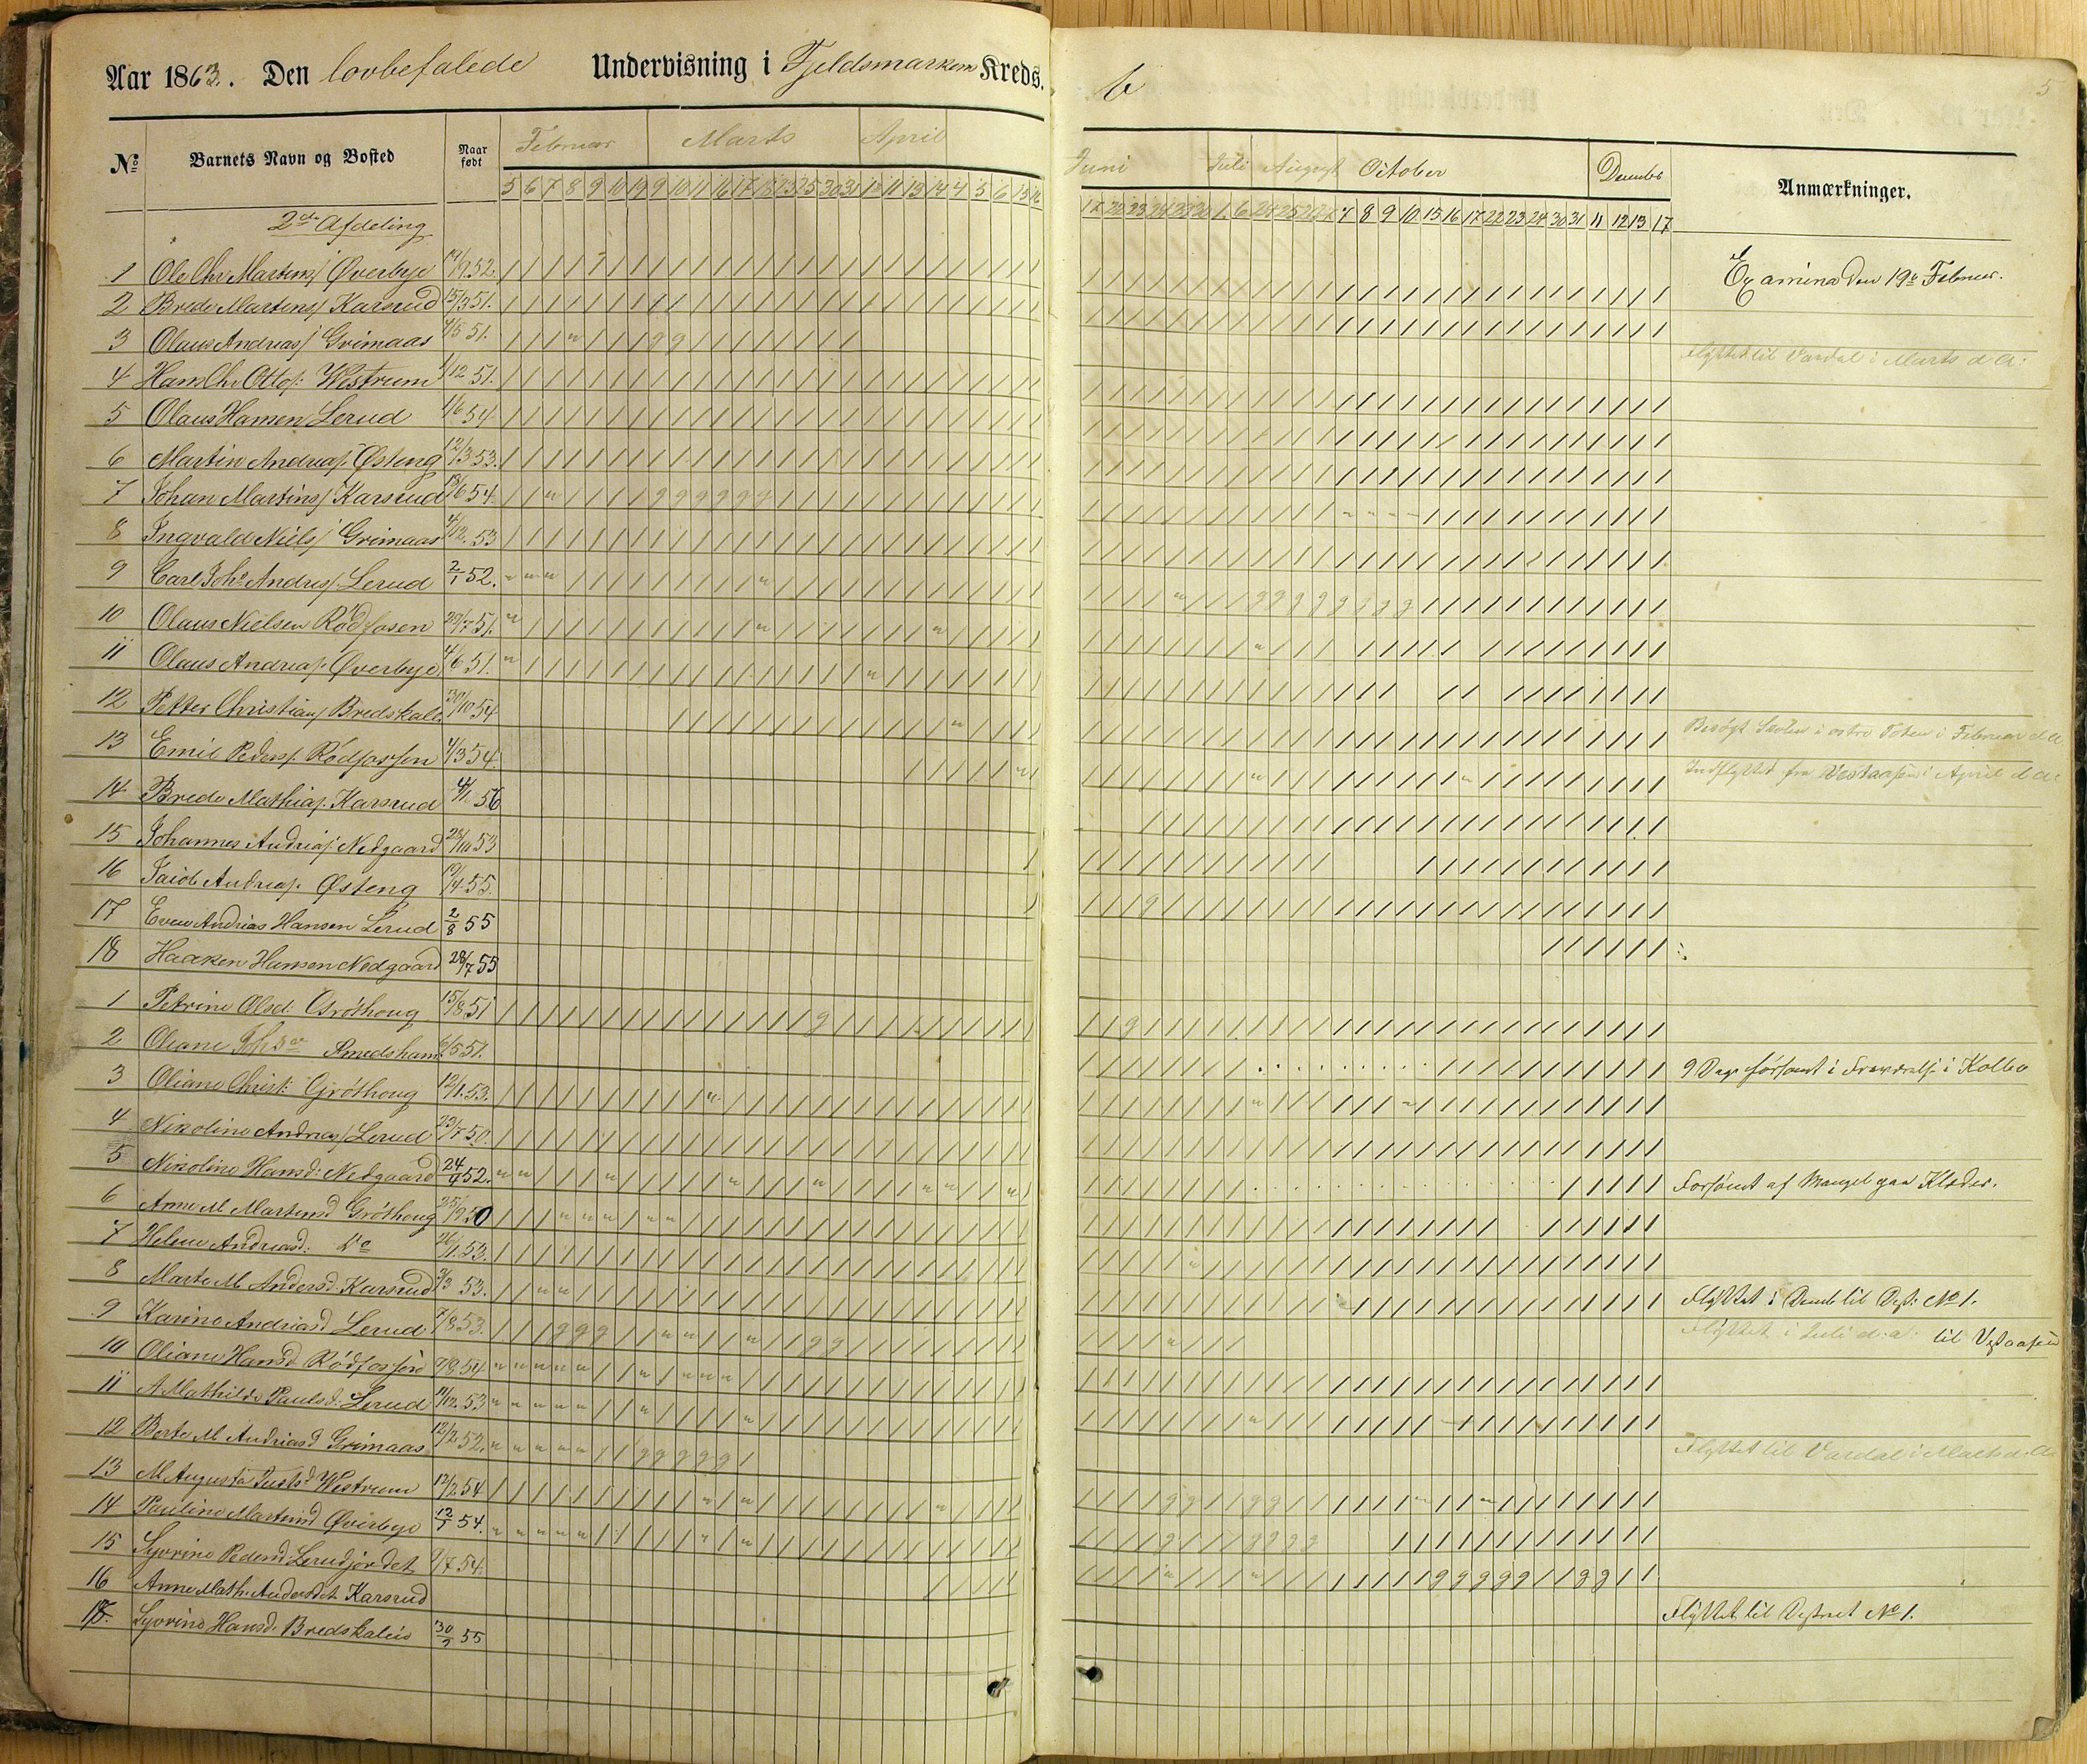 Aar 1863. Den lovbefalede Undervisning i Fjeldsmarken Kreds.
№ Barnets Navn og Bosted Naar født Februar Marts April
5 6 7 8 9 10 19 9 10 11 16 17 18 23 25 30 31 10 11 13 14 4 5 6 15 16
2de Afdeling
1 Ole Chr Martins/ Øverbye 19/9 52.
2 Brede Martins/ Karsrud 15/3 51.
3 Olaus Andreas/ Grimaas 4/5 51.
4 Hans Chr Ottos/: Westrum 1/12 51.
5 Olaus Hansen Lerud 4/6 54
6 Martin Andreas/. Østeng 12/3 53.
7 Johan Martins/ Karsrud 18/6 54
8 Ingvald Niels/ Grimaas 4/12. 53
9 Carl Johs Andres/. Lerud 2/1 52.
10 Olaus Nielsen Rødfosen 29/7 51.
11 Olaus Andreas/. Øverbye 4/6 51.
12 Petter Christians/ Bredskale 30/10 54
13 Emil Peders/. Rødfossen 4/3 54.
14 Brede Mathias/. Karsrud 4/1. 56
15 Johannes Andreas/ Nedgaard 28/10 53
16 Jacob Andreas/. Østeng 19/4 55.
17 Even Andreas Hansen Lerud 2/8 55
18 Haaken Hansen Nedgaard 28/7 55
1 Petrine Olsd: Grøthoug 15/8 51
2 Oleane Smedsham 5 51.
3 Oliane Christ: Grøthoug 12/1. 53.
4 Nikoline Andreas/ Lerud 23/7 50.
5 Nikoline Hansd: Nedgaard 24/4 52.
6 Anne M Martinsd Grøthoug 25/9 50
7 Helene Andreasd: Do 26/1. 53.
8 Marte M. Andersd. Karsrud 9/3 53.
9 Karine Andreasd Lerud 7/8 53.
10 Oliane Hansd Rødfossen 7/9 54
11 A Mathilde Paulsd: Lerud 19/12. 53
12 Berte M Andreasd Grimaas 12/2 52.
13 M Augusta Westrum 12/2 54
14 Pauline Martinsd Øverbye 12/5 54.
15 Syverine Pedersd Lerudjordet 9/7 54.
16 Anne Math. Andersdt Karsrud
18. Syverine Hansd. Bredskalen 30/5 55
6
5
Juni Juli August October Decembr Anmærkninger.
17 20 23 24 29 30 1. 6 24 25 26 27 7 8 9 10 15 16 17 22 23 24 30 31 11 12 13 17
Examina den 19de Februar.
Flyttet til Vardal i Marts d A:
Besøgt Skolen i østre Toten i Februar d A
Indflyttet fra Vestaasen i April d A:
9 Dage forsømt i Fraværelse i Kolbo
Forsømt af Mangel paa Klæder.
Flyttet i Decemb til Dist: No 1.
Flyttet i Juli d: a: til Vestaasen
Flyttet til Vardal i Marts d: A:
Flyttet til Distrect No 1.